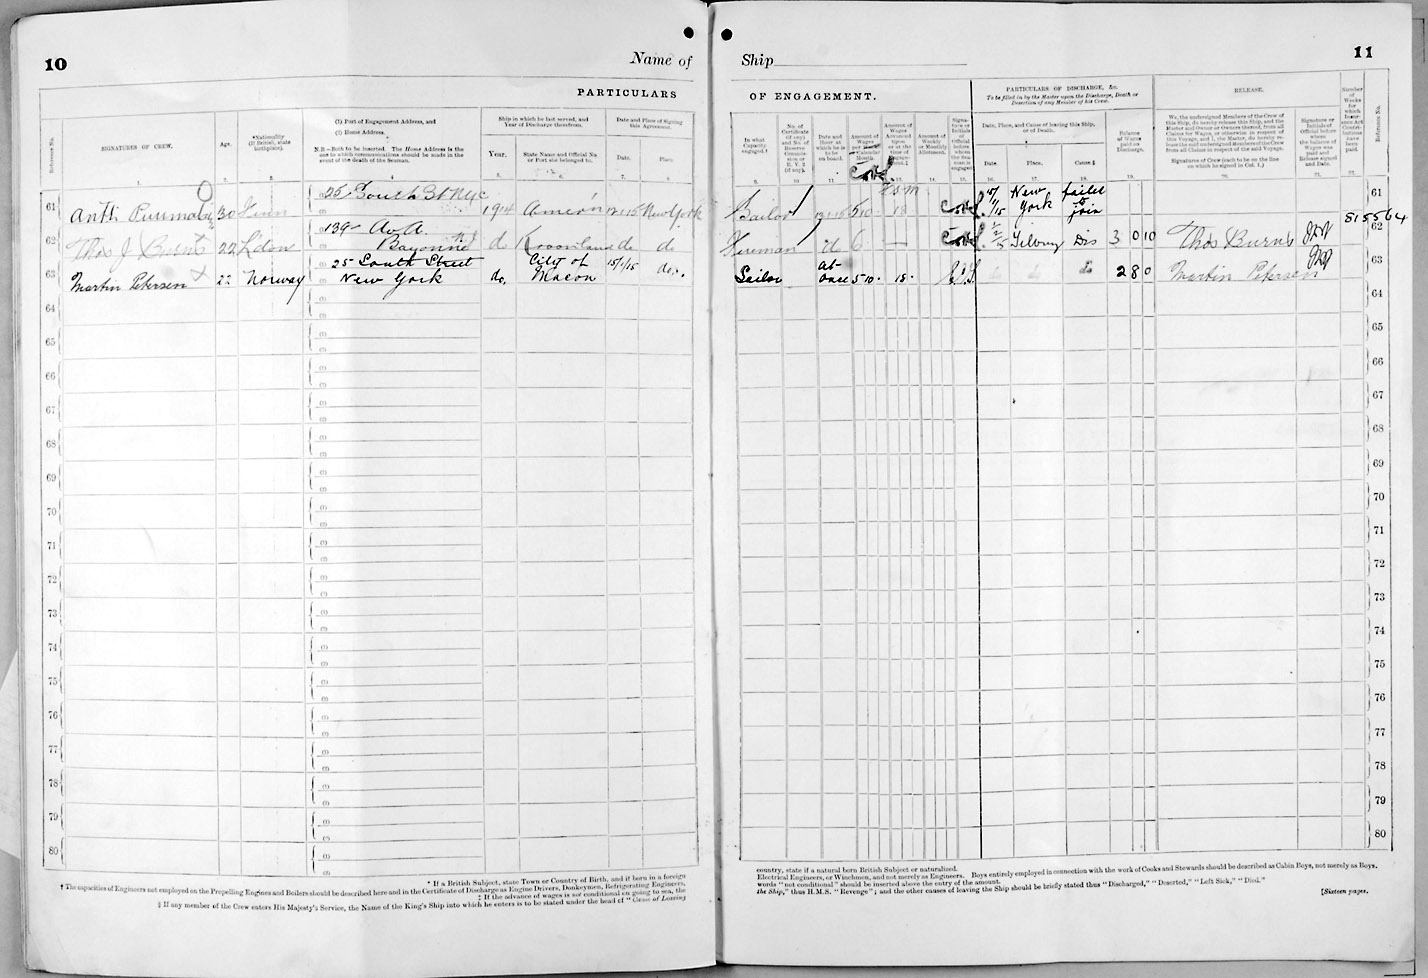 10
Name of
Ship
11
PARTICULARS
OF ENGAGEMENT.
Reference No.
SIGNATURES OF CREW.
Age.
*Nationality
(If British, state
birthplace).
(1) Port of Engagement Address, and
(2) Home Address.
N.B.—Both to be inserted. The Home Address is the
one to which communications should be made in the
event of the death of the Seaman.
Ship in which he last served, and
Year of Discharge therefrom.
Year.
State Name and Official No.
or Port she belonged to.
Date and Place of Signing
this Agreement.
Date.
Place
In what
Capacity
engaged.†
No. of
Certificate
(if any)
and No. of
Reserve
Commis-
sion or
R. V. 2
(if any).
Date and
Hour at
which he is
to be
on board.
Amount of
Wages
Calendar
Month.
Amount of
Wages
Advanced
Upon
or at the
time of
Engage-
ment.‡
Amount of
Weekly
or Monthly
Allotment.
Signa-
ture or
Initials of
Official
before
whom
the Sea-
man is
engaged
PARTICULARS OF DISCHARGE, &c.
To be filled in by the Master upon the Discharge, Death or
Desertion of any Member of his Crew.
Date, Place, and Cause of leaving this Ship,
or of Death.
Date.
Place.
Cause §
Balance
of Wages
paid on
Discharge.
RELEASE.
We, the undersigned Members of the Crew of
this Ship, do hereby release this Ship, and the
Master and Owner or Owners thereof, from all
Claims for Wages, or otherwise in respect of
this Voyage, and I, the Master, do hereby re-
lease the said undersigned Members of the Crew
from all Claims in respect of the said Voyage.
Signatures of Crew (each to be on the line
on which he signed in Col. 1.)
Signature or
Initials of
Official before
whom
the balance of
Wages was
paid and
Release signed
and Date.
Number
of
Weeks
for
which
Insur-
ance Act
Contri-
butions
have
been
paid.
Reference No.
61 Antti 30 25 South St NYC 1914 New York Sailor 5 10 18 New York failed to join 61
815564
62 Thos J Burns 22 London 139 Av A. Bayonne do Kroonland do do Fireman do 6 Tilbury Dis 3 0 10 Thos Burns 62
63 Martin Petersen 22 Norway 25 South Street New York do. City of Macon 15/1/15 do. Sailor at once 5 10 18 2 8 0 Martin Petersen 63
64 64
65 65
66 66
67 67
68 68
69 69
70 70
71 71
72 72
73 73
74 74
75 75
76 76
77 77
78 78
79 79
80 80
* If a British Subject, state Town or Country of Birth, and if born in a foreign
country, state if a natural born British Subject or naturalized.
† The capacities of Engineers not employed on the Propelling Engines and Boilers should be described here and in the Certificate of Discharge as Engine Drivers, Donkeymen, Refrigerating Engineers,
Electrical Engineers, or Winchmen, and not merely as Engineers. Boys entirely employed in connection with the work of Cooks and Stewards should be described as Cabin Boys, not merely as Boys.
‡ If the advance of wages is not conditional on going to sea, the
words "not conditional" should be inserted above the entry of the amount.
§ If any member of the Crew enters His Majesty's Service, the Name of the King's Ship into which he enters is to be stated under the head of "Cause of Leaving
the Ship," thus H.M.S. "Revenge"; and the other causes of leaving the Ship should be briefly stated thus "Discharged," "Deserted," "Left Sick," "Died."
[Sixteen pages.